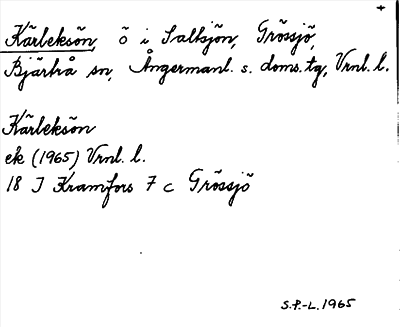 +
Kärleksön, ö i Saltsjön, Grössjö,
Bjärtrå sn, Ångermanl. s. doms. tg, Vrnl. l.
Kärleksön
ek (1965) Vrnl. l.
18 I Kramfors 7 c Grössjö
S.P.-L. 1965